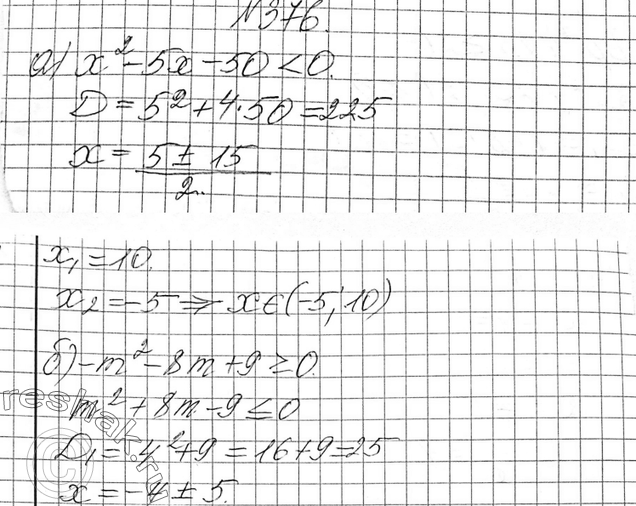 №376.
а) x² - 5x - 50 < 0.
D = 5² + 4·50 = 225
x = (5 ± 15)/2
x₁ = 10.
x₂ = -5 ⇒ x ∈ (-5; 10)
б) -m² - 8m + 9 ≥ 0.
m² + 8m - 9 ≤ 0
D₁ = 4² + 9 = 16 + 9 = 25
x = -4 ± 5.
reshak.ru